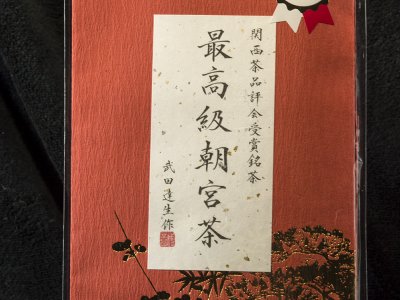 関西茶品評会受賞銘茶
最高級朝宮茶
武田達生作